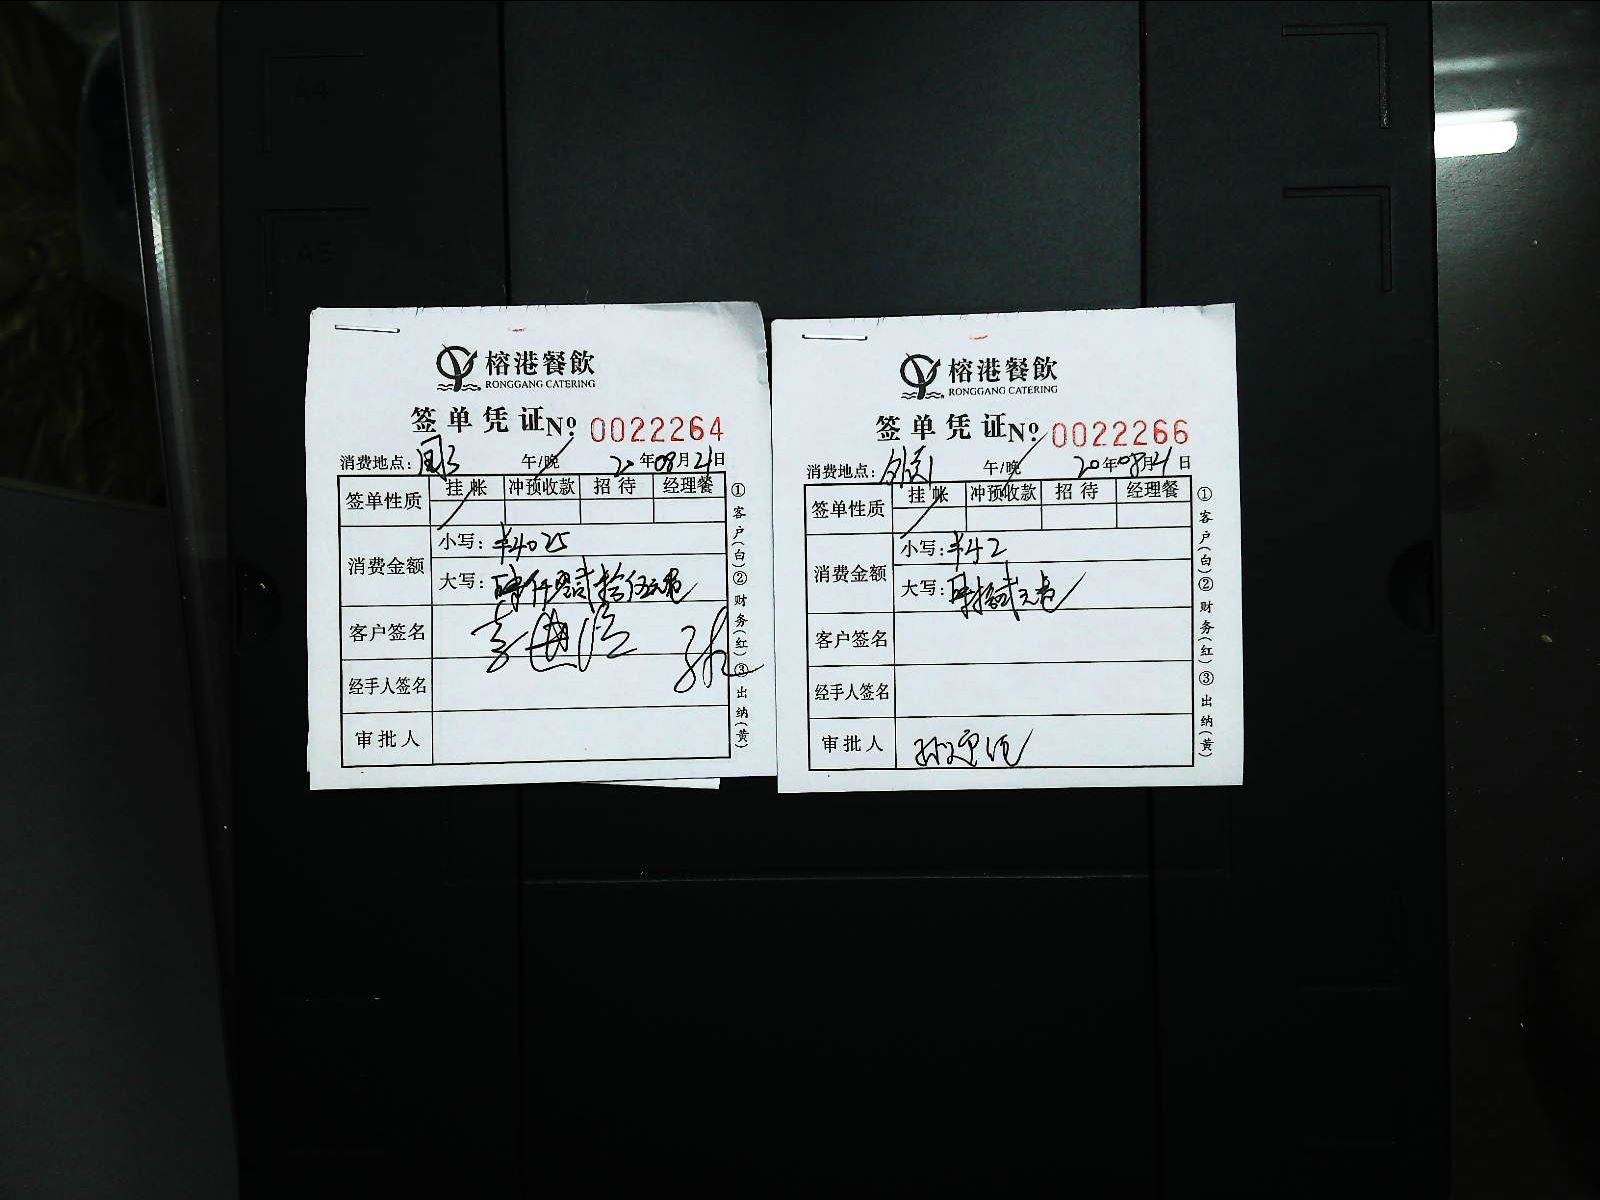 A4
A5
榕港餐飲
RONGGANG CATERING
签单凭证 No 0022264
消费地点: 午/晚 20年08月21日
签单性质 挂帐 冲预收款 招待 经理餐
消费金额 小写: ¥4025
大写: 肆仟零贰拾伍元
客户签名
经手人签名
审批人
①客户(白)②财务(红)③出纳(黄)
榕港餐飲
RONGGANG CATERING
签单凭证 No 0022266
消费地点: 午/晚 20年08月21日
签单性质 挂帐 冲预收款 招待 经理餐
消费金额 小写: ¥42
大写: 肆拾贰元
客户签名
经手人签名
审批人
①客户(白)②财务(红)③出纳(黄)